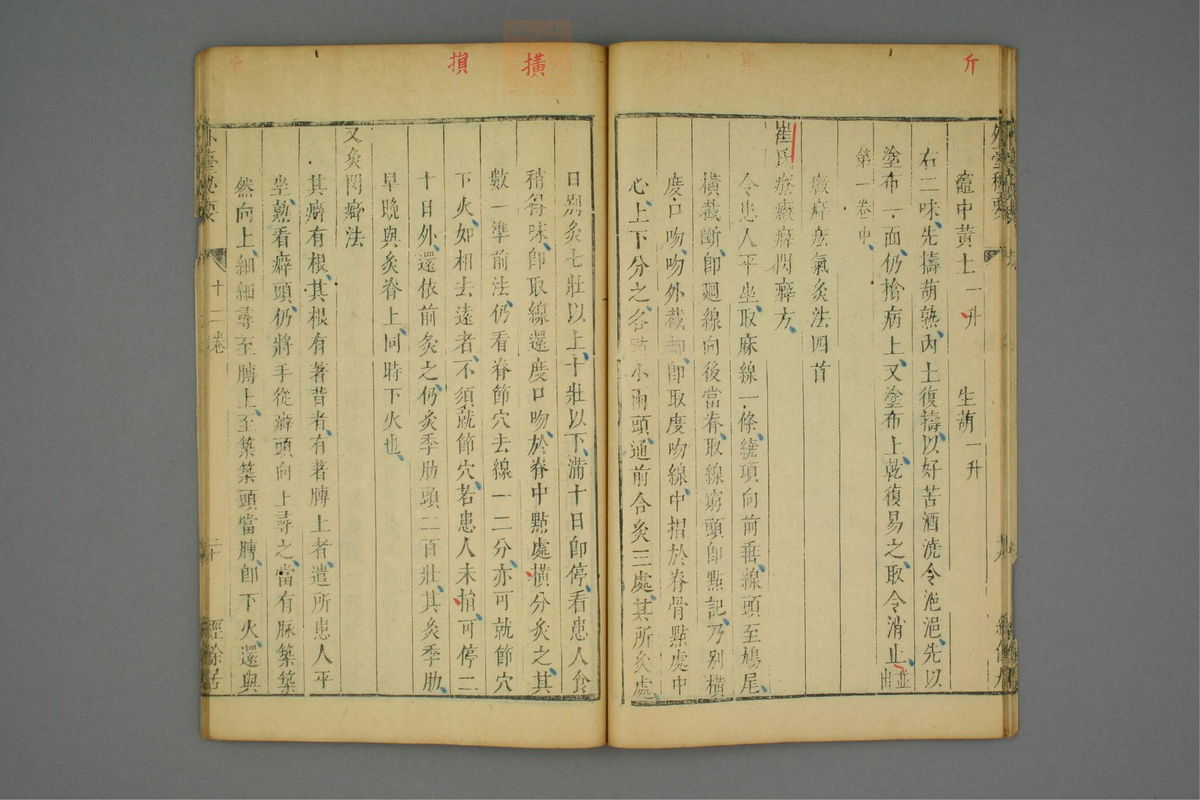 斤
竈中黃土一升 生葫一升
右二味先擣葫熟內土復擣以好苦酒澆令浥浥先以
塗布一面仍搶病上又塗布上乾復易之取令消止並出
第一卷中
癥癖痃氣灸法四首
崔氏療癥癖閃癖方
令患人平坐取麻線一條繞項向前垂線頭至鳩尾
橫截斷卽廻線向後當脊取線窮頭卽點記乃別橫
度口吻吻外截却卽取度吻線中摺於脊骨點處中
心上下分之各點小兩頭通前合灸三處其所灸處
橫
損
日別灸七壯以上十壯以下滿十日卽停看患人食
稍得味卽取線還度口吻於脊中點處橫分灸之其
數一準前法仍看脊節穴去線一二分亦可就節穴
下火如相去遠者不須就節穴若患人未損可停二
十日外還依前灸之仍灸季肋頭二百壯其灸季肋
早晚與灸脊上同時下火也
又灸閃癖法
其癖有根其根有著背者有著膊上者遣所患人平
坐熟看癖頭仍將手從癖頭向上尋之當有脈築築
然向上細細尋至膊上至築築頭當膊卽下火還與
外臺秘要 十二卷 二十 經餘居